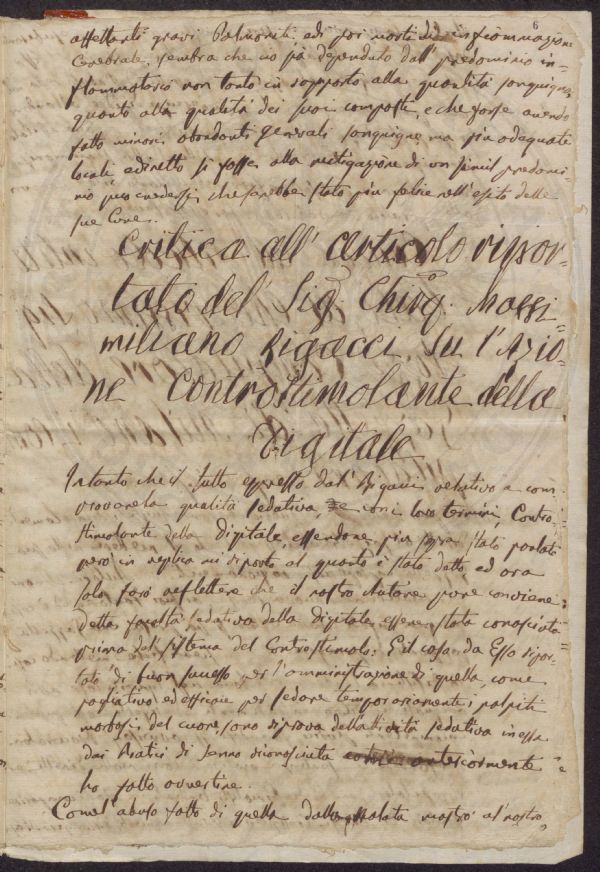 6
affettanti gravi Polmoniti ed poi morti di infiammazione
Cerebrale, sembra che ciò sia dependuto dall' predominio in-
flammatorio non tanto in rapporto alla quantità sanguigna
quanto alla qualità dei suoi composti, e che forse avendo
fatto minori abondanti generali sanguigne, ma più adequate
locali e diretto si fosse alla mitigazione di un simil predomi-
nio può credersi, che sarebbe stato più felice nell' esito delle
sue Cure.
Critica all' Articolo ripor-
tato del' Sig. Chirg. Massi=
miliano Rigacci, su l'Azio=
ne Controstimolante della
Digitale
Intanto che il tutto espresso dal' Rigacci relativo a com-
provare la qualità sedativa, e con loro termini, Contro-
stimolante della digitale, essendone più sopra stato parlato
però in replica mi riporto al quanto è stato detto ed ora
solo farò reflettere che il nostro Autore pure conviene
detta facoltà sedativa della digitale essere stata conosciuta
prima dall' sistema del Controstimolo: E il caso da Esso ripor-
tato di buon successo per l'amministrazione di quella, come
pagliativo ed efficace per sedare temporariamente i palpiti
morbosi, del cuore, sono riprova dell'attività sedativa in essa
dai Pratici di senno riconosciuta come anteriormente
ho fatto avvertire.
Come l'abuso fatto di quella dall' mostrò al nostro